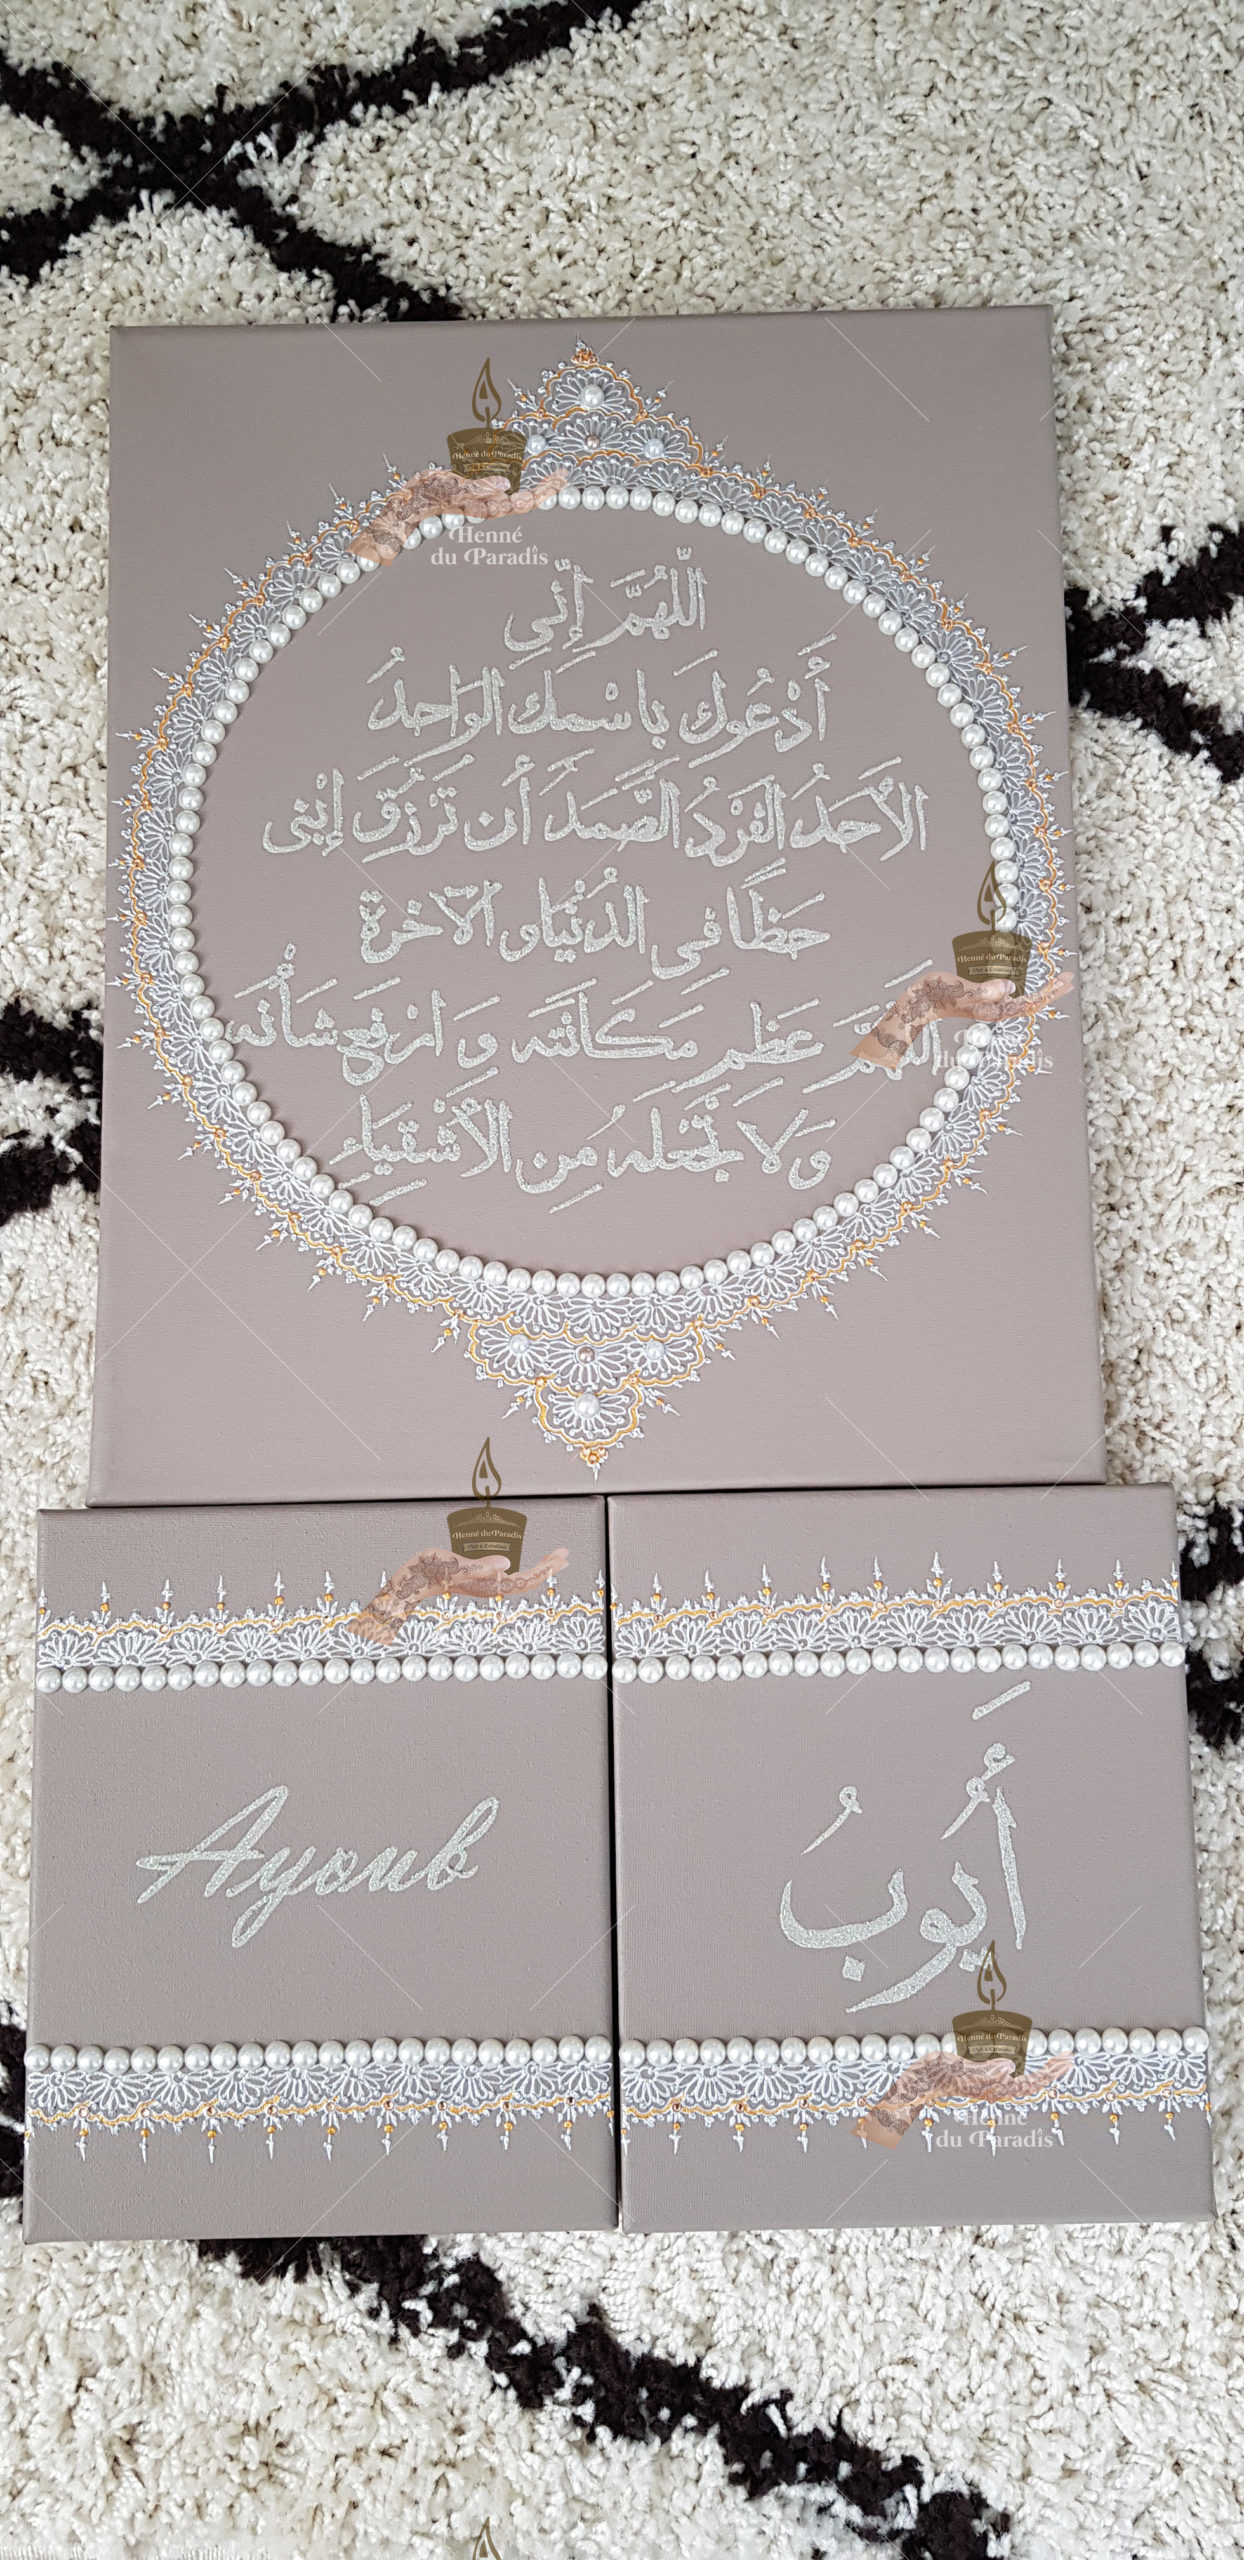 اللَّهُمَّ إِنِّي
أَدْعُوكَ بِاسْمِكَ الوَاحِدُ
الأَحَدُ الفَرْدُ الصَّمَدَ أَن تَرْزُقَ إِبْنِي
حَظًا فِي الدُنْيَا و الآخرة
اللَّهُمَّ عَظِم مَكَانَتَه وَ ارْفَع شَأْنَه
وَ لَا تَجْعَله مِن الأَشْقِيَاءِ
Ayoub
أَيُوبُ
Henné du Paradis
Art & Création
Henné
du Paradis
Henné du Paradis
Art & Création
du Paradis
Henné du Paradis
Art & Création
Henné du Paradis
Art & Création
Henné
du Paradis